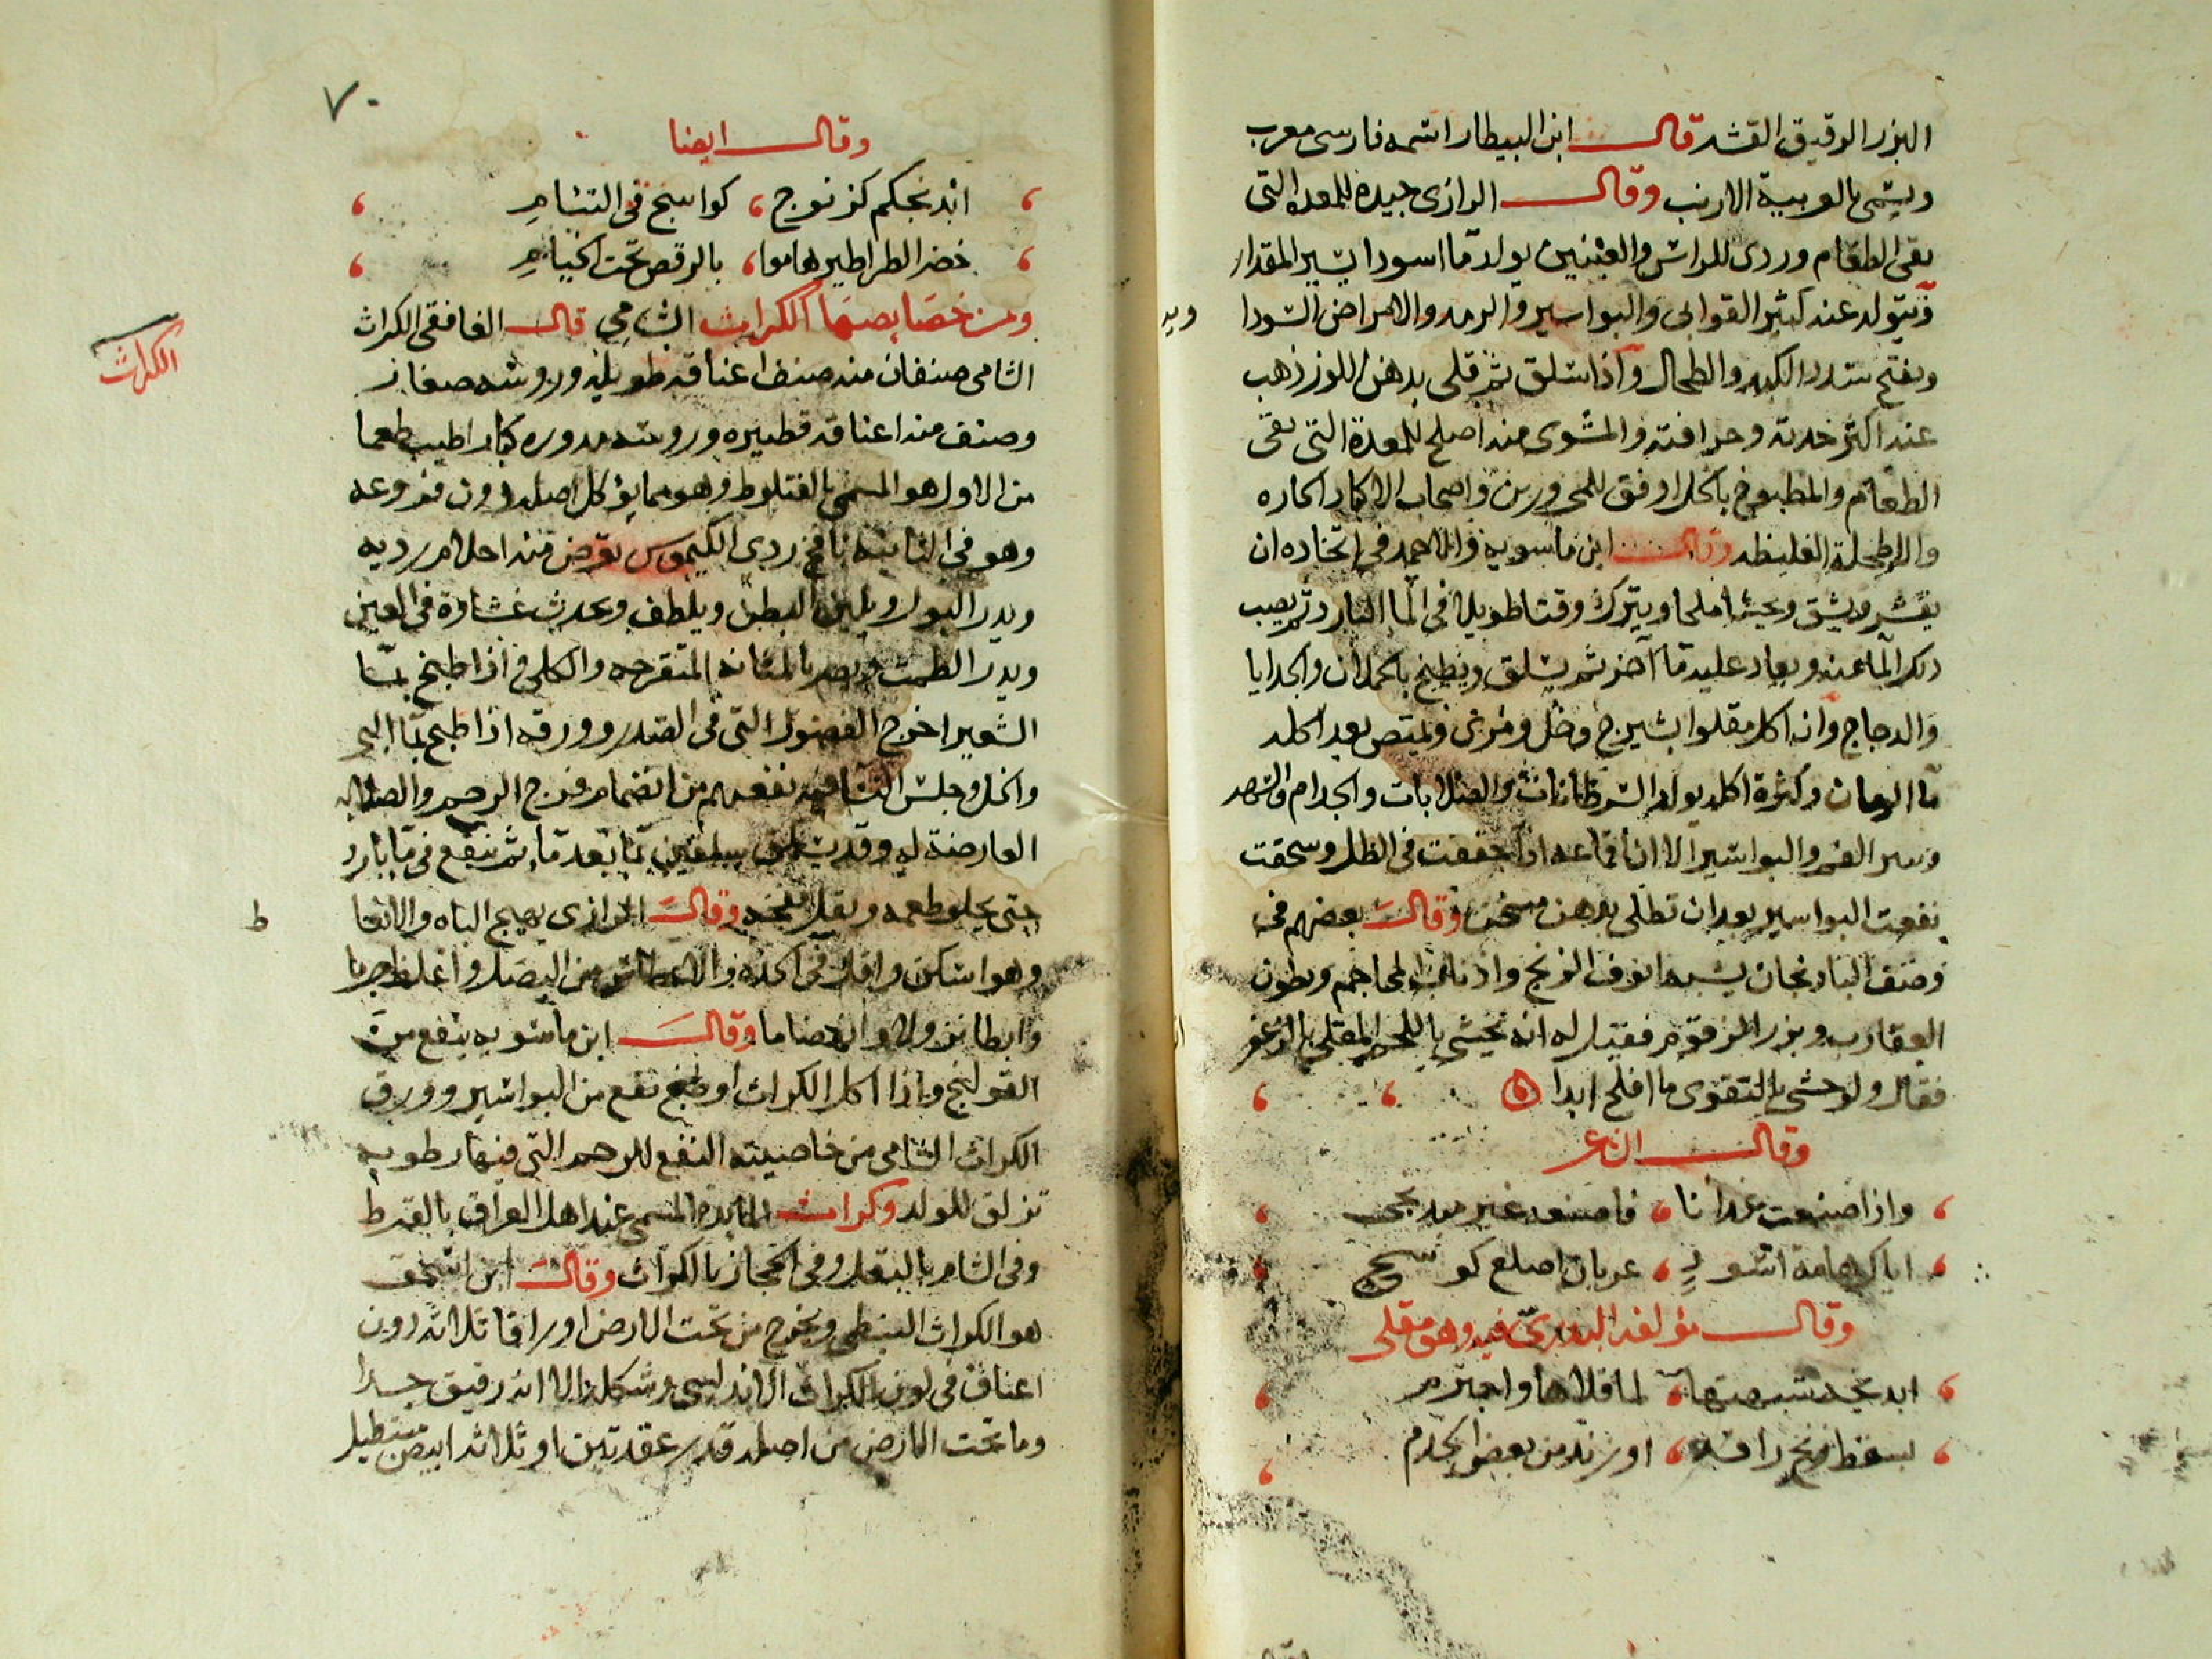 البزر الرقيق القشر قال ابن البيطار اسمه فارسى معرب
ويسمى بالعربية الارنب وقال الرازى جيده للمعده التى
تقى الطعام وردى للراس والعينين يولد دما اسودا يسير المقدار
فيتولد عنه كثير القوابى والبواسير والرمد والامراض السودا
ويفتح سدد الكبد والطحال واذا سلق ثم قلى بدهن اللوز ذهب
عنه اكثر حدته وحرافته والمشوى منه اصلح للمعدة التى تقى
الطعام والمطبوخ بالخل اوفق للمحرورين واصحاب الاكباد الحاره
والاطحلة الغليظه وقال ابن ماسويه والاحمد فى اتخاده ان
يقشر ويشق ويحشا ملحا ويترك وقتا طويلا فى الما البارد ثم يصب
ذلك الما عنه ويعاد عليه ما اخر ثم يسلق ويطبخ بالحملان والجدايا
والدجاج وان اكل مقلوا بشيرج وخل ومرى ويمتص بعد اكله
ما الرمان وكثرة اكله يولد السرطانات والصلابات والجدام والسهر
الفم والبواسير الا ان اقماعه اذا جففت فى الظل وسحقت
نفعت البواسير بعد ان تطلى بدهن مسخن وقال بعضهم فى
وصف البادنجان يشبه انوف الزنج واذناب المحاجم وبطون
العقارب وبزر الزقوم فقيل له انه يحشى باللحم المقلى
فقال ولو حشى بالتقوى ما افلح ابدا ه
وقال الشاعر
واذا صنعت غدانا فاصنعه غير مبدنجى
اياك هامة اسود عريان اصلع كوسج
وقال مؤلفه البدرى فيه وهو مقلى
ابدنجه شبهتها لما قلاها واحترم
بسقط زنج
من بعض الخدم
٧٠
وقال ايضا
ابدنجكم كزنوج كواسج فى التسام
خضر الطراطير هاموا بالرقص تحت الخيام
ومن خصايصها الكراث الشامى قال الغافقى الكراث
الكراث
الشامى صنفان منه صنف اعناقه طويله وروسه صغار
وصنف منه اعناقه قصيره وروسه مدوره كبار اطيب طعما
من الاول هو المسمى بالقفلوط وهو مما يؤكل اصله دون فروعه
وهو فى الثانيه نافخ ردى الكيموس يعرض منه احلام رديه
ويدر البول ويلين البطن ويلطف ويحدث غشاوة فى العين
ويدر الطمث ويضر بالمثانه المتقرحه والكلى واذا طبخ بما
الشعير اخرج الفضول التى فى الصدر وورقه اذا طبخ بما البحر
والخل وجلس النسا فيه نفعهم من انضمام فرج الرحم والصلابه
العارضة له وقد يسلق سلقتين بما بعد ما ثم ينقع فى ما بارد
حتى يحلو طعمه ويقل نفخه وقال الرازى يهيج الباه والانعا
ط
وهو اسكن واقل فى اكله والاعطاش من البصل واغلظ جرما
وابطا نزولا وانهضاما وقال ابن ماسويه ينفع من
القولنج واذا اكل الكراث او طبخ نفع من البواسير وورق
الكراث الشامى من خاصيته النفع للرحم التى فيها رطوبه
تزلق للولد وكراث المايدة المسمى عند اهل العراق بالقرط
وفى الشام بالبقل وفى الحجاز بالكراث وقال ابن اسحق
هو الكراث النبطى ويخرج من تحت الارض اوراقا ثلاثه دون
اعناق فى لون الكراث الاندلسى وشكله الا انه رقيق جدا
وما تحت الارض من اصله قدر عقدتين او ثلاثه ابيض مستطيل